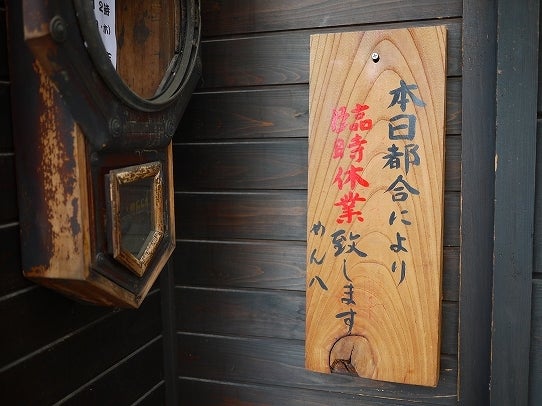 本日都合により
臨時休業致します
めん八
2時